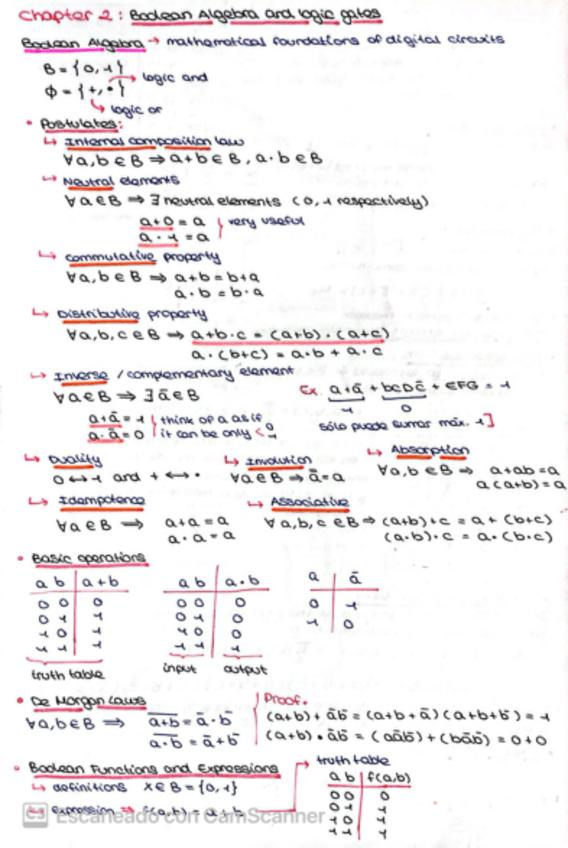 Chapter 2: Boolean Algebra and logic gates
Boolean Algebra → mathematical foundations of digital circuits
B = {0,1}
→ logic and
Φ = {+,•}
↳ logic or
• Postulates:
↳ Internal composition law
∀a,b ∈ B ⇒ a+b ∈ B, a·b ∈ B
↳ Neutral elements
∀a ∈ B ⇒ ∃ neutral elements (0,1 respectively)
a+0 = a
a·1 = a
very useful
↳ commutative property
∀a,b ∈ B ⇒ a+b = b+a
a·b = b·a
↳ Distributive property
∀a,b,c ∈ B ⇒ a+b·c = (a+b)·(a+c)
a·(b+c) = a·b + a·c
↳ Inverse / complementary element
∀a ∈ B ⇒ ∃ ā ∈ B
a+ā = 1
a·ā = 0
think of a as if
it can be only < 0 1
Ex. a+ā + bcDc̄ + EFG = 1
1 0
sólo puede sumar máx. 1]
↳ Duality
0 ↔ 1 and + ↔ •
↳ Involution
∀a ∈ B ⇒ a̿ = a
↳ Absorption
∀a,b ∈ B ⇒ a+ab = a
a(a+b) = a
↳ Idempotence
∀a ∈ B ⇒ a+a = a
a·a = a
↳ Associative
∀a,b,c ∈ B ⇒ (a+b)+c = a+(b+c)
(a·b)·c = a·(b·c)
• Basic operations
a b | a+b
0 0 | 0
0 1 | 1
1 0 | 1
1 1 | 1
truth table
a b | a·b
0 0 | 0
0 1 | 0
1 0 | 0
1 1 | 1
input output
a | ā
0 | 1
1 | 0
• De Morgan Laws
∀a,b ∈ B ⇒ \overline{a+b} = ā·b̄
\overline{a·b} = ā+b̄
Proof.
(a+b)+āb̄ = (a+b+ā)(a+b+b̄) = 1
(a+b)·āb̄ = (aāb̄)+(bāb̄) = 0+0
• Boolean Functions and Expressions
↳ definitions x ∈ B = {0,1}
↳ expression ⇒ f(a,b) = a+b
→ truth table
a b | f(a,b)
0 0 | 0
0 1 | 1
1 0 | 1
1 1 | 1
CS Escaneado con CamScanner